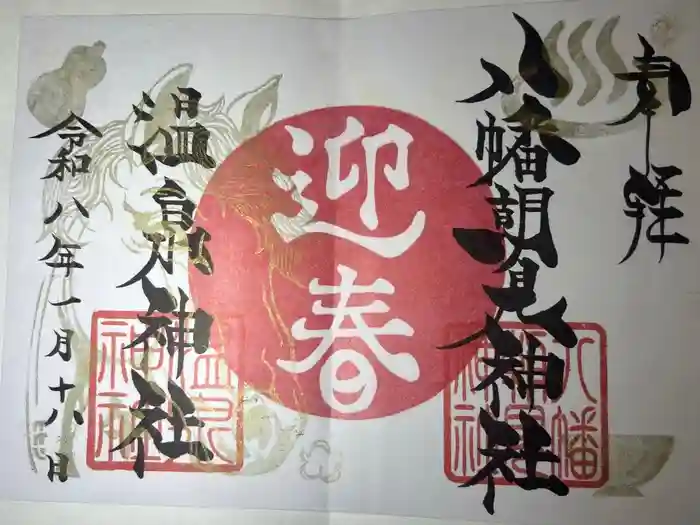 奉拝
八幡朝見神社
八幡
朝見
神社
迎春
温泉神社
温泉
神社
令和八年一月十八日